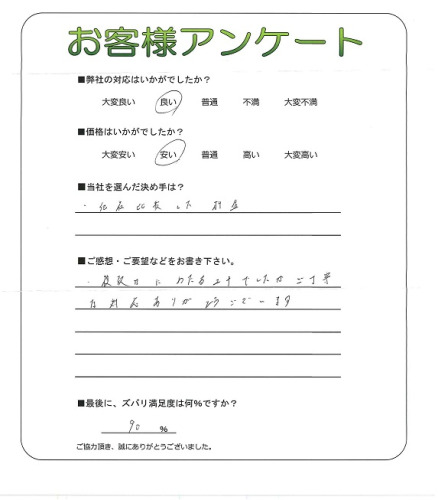 お客様アンケート
■弊社の対応はいかがでしたか？
大変良い 良い 普通 不満 大変不満
■価格はいかがでしたか？
大変安い 安い 普通 高い 大変高い
■当社を選んだ決め手は？
・他店比較した 料金
■ご感想・ご要望などをお書き下さい。
・複数カ にわたる工事でしたが ご丁寧
な対応ありがとうございます
■最後に、ズバリ満足度は何％ですか？
90 ％
ご協力頂き、誠にありがとうございました。